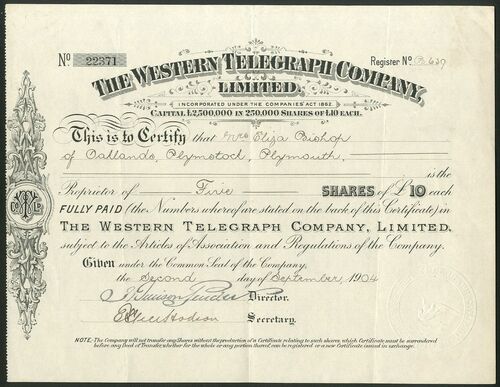 No 22371 Register No B.639
THE WESTERN TELEGRAPH COMPANY,
LIMITED.
INCORPORATED UNDER THE COMPANIES' ACT 1862.
CAPITAL £2,500,000 IN 250,000 SHARES OF £10 EACH.
This is to Certify that Mrs Eliza Bishop
of Oaklands, Plymstock, Plymouth, is the
Proprietor of Five SHARES of £10 each
FULLY PAID (the Numbers whereof are stated on the back of this Certificate) in
THE WESTERN TELEGRAPH COMPANY, LIMITED,
subject to the Articles of Association and Regulations of the Company.
Given under the Common Seal of the Company,
the Second day of September, 1904
Director.
Secretary.
NOTE. The Company will not transfer any Shares without the production of a Certificate relating to such shares, which Certificate must be surrendered
before any deed of Transfer, whether for the whole or any portion thereof, can be registered or a new Certificate issued in exchange.